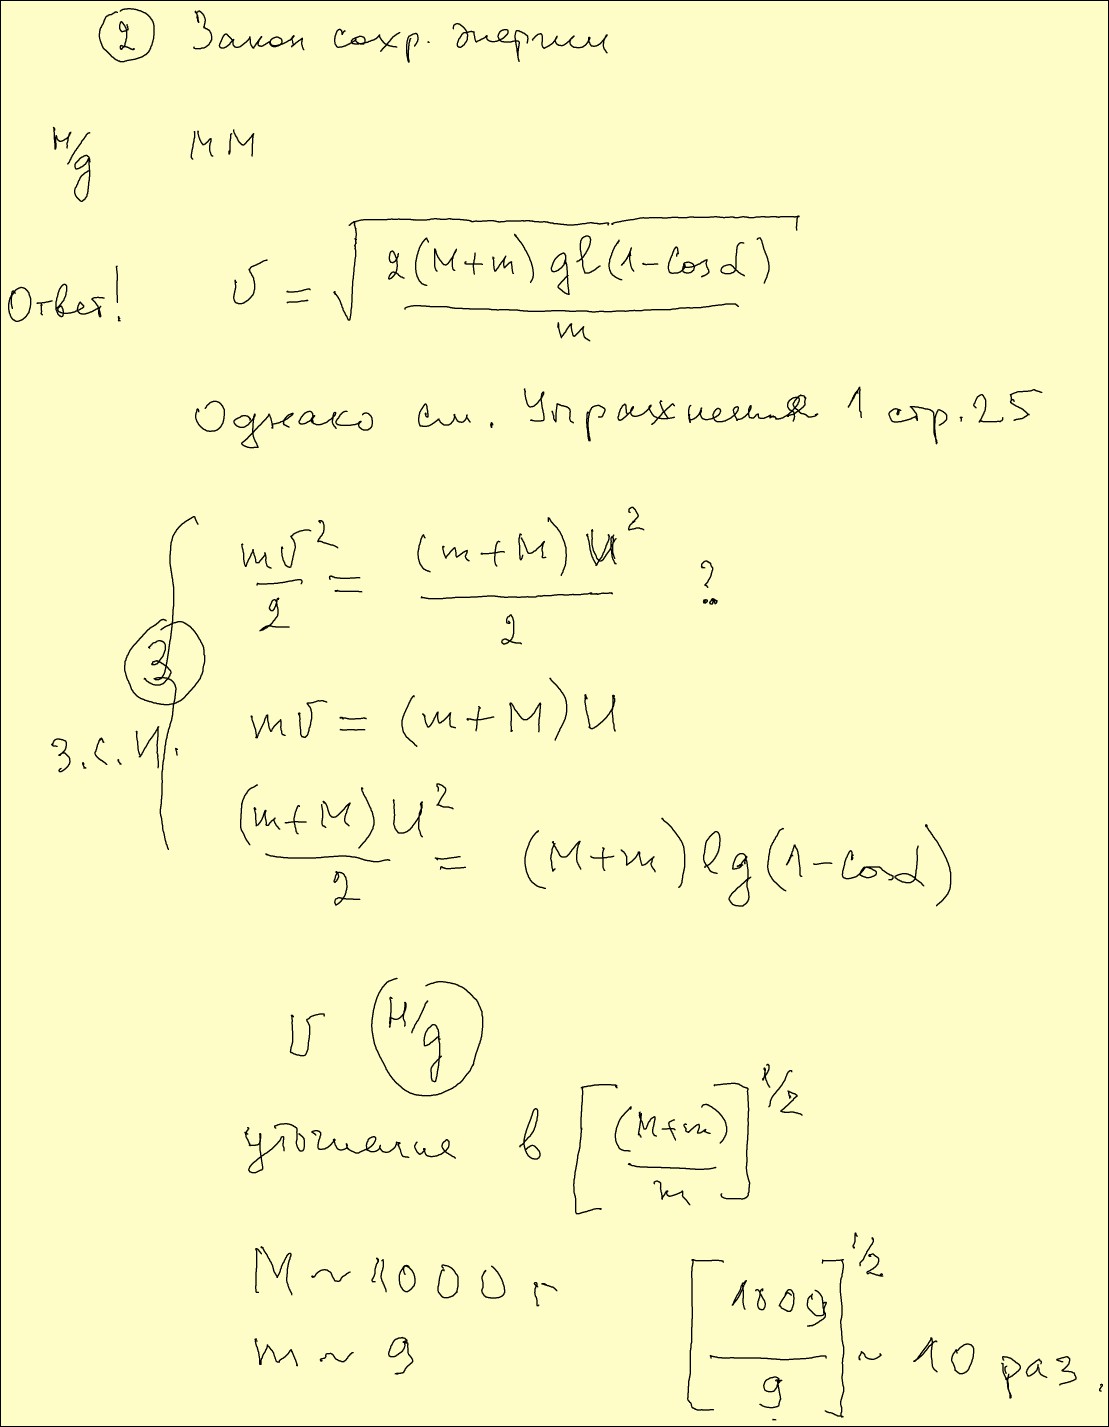 ② Закон сохр. энергии
м/g мм
Ответ! v = √(2(M+m)gl(1-cosα)/m)
Однако см. Упражнения 1 стр. 25
mv²/2 = (m+M)u²/2 ?
③
mv = (m+M)u
З.С.И.
(m+M)u²/2 = (M+m)lg(1-cosα)
v м/g
уточнение в [(M+m)/m]^1/2
M ~ 1000 г
m ~ 9
[1009/9]^1/2 ~ 10 раз.